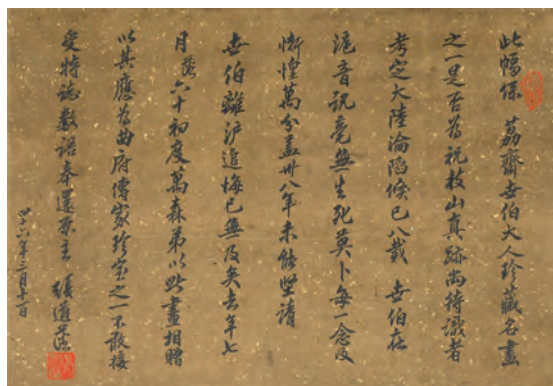 此幅係 荔齋世伯大人珍藏名畫
之一是否為祝枝山真跡尚待識者
考定大陸淪陷倏已八載 世伯在
滬音訊竟無生死莫卜每一念及
慚惶萬分蓋卅八年未能堅請
世伯離滬追悔已無及矣去年七
月藩六十初度萬森弟以此畫相贈
以其應為曲府傳家珍寶之一不敢接
受特誌數語奉還原主 張道藩
四十六年三月十一日